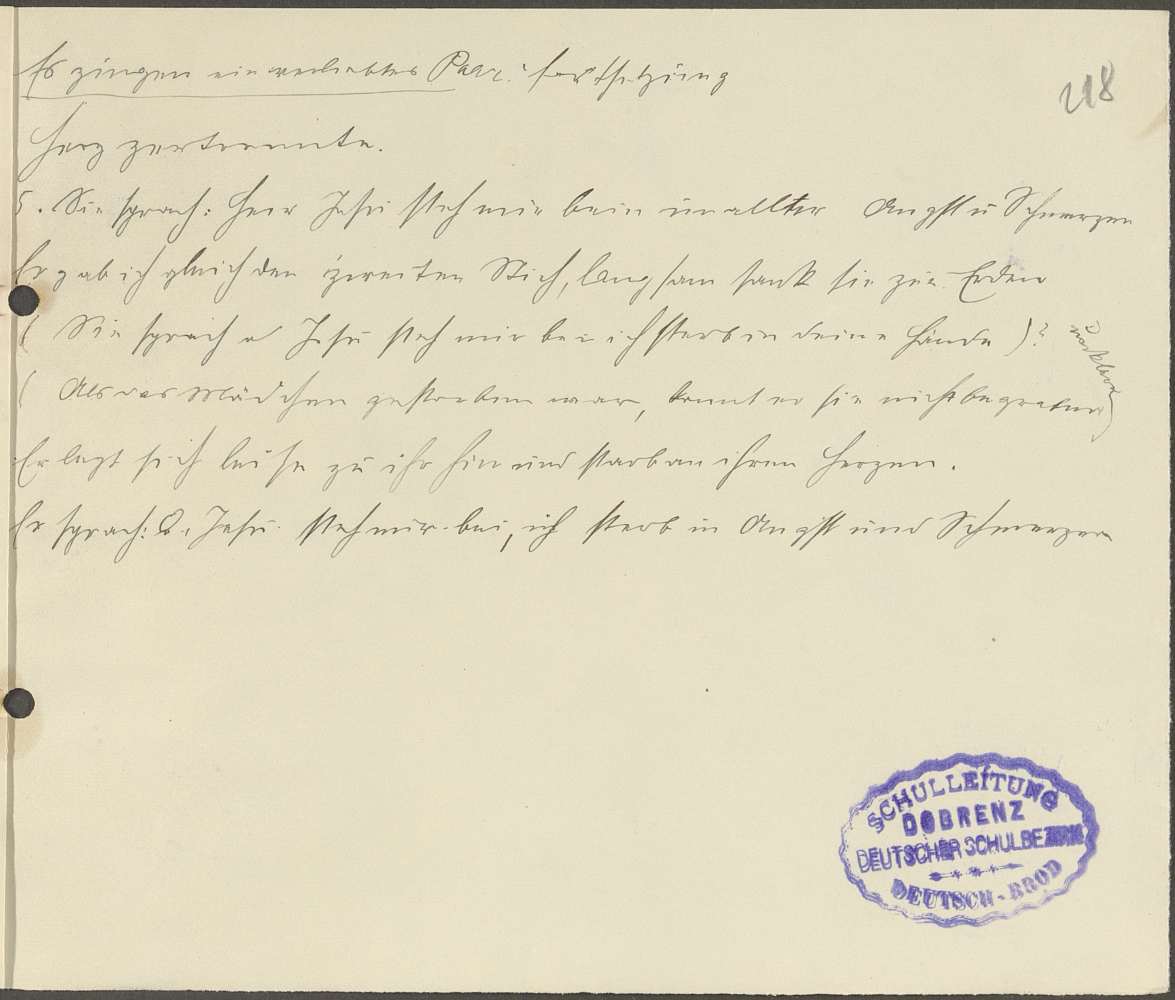 Es gingen ein verliebtes Paar. Fortsetzung
218
Herz zertrennte.
5. Sie sprach: Herr Jesu steh mir bei in aller Angst u Schmerzen
Er gab ich gleich den zweiten Stich, langsam sank sie zur Erden
( Sie sprach o Jesu steh mir bei ich sterb in deine Hände )?
( Als das Mädchen gestorben war, konnt er sie nicht begraben
Er legt sich leise zu ihr hin und starb an ihren Herzen.
Er sprach: O, Jesu steh mir bei, ich sterb in Angst und Schmerzen
SCHULLEITUNG
DOBRENZ
DEUTSCHER SCHULBEZIRK
DEUTSCH-BROD